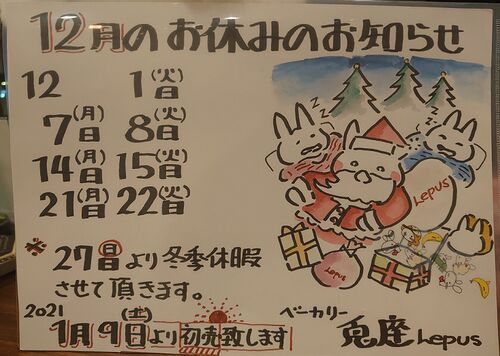 12月のお休みのお知らせ
12 1日(火)
7日(月) 8日(火)
14日(月) 15日(火)
21日(月) 22日(火)
※27日(日)より冬季休暇
させて頂きます。
2021
1月9日(土)より初売致します
ベーカリー 兎座 Lepus
zzz
zzz
Lepus
Lepus